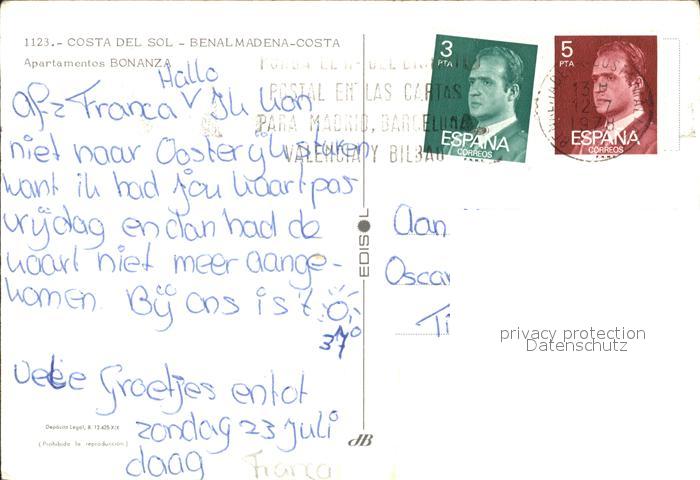 1123.- COSTA DEL SOL - BENALMADENA-COSTA
Apartamentos BONANZA
Hallo
Afz Franca Ik kon
niet naar Oosterijk sturen
want ik had jou kaart pas
vrijdag en dan had de
kaart niet meer aange-
komen. Bij ons is 't
37°
Vele Groetjes en tot
zondag 23 juli
daag Franca
Depósito Legal, B. 12.425-XIX
(Prohibida la reproducción)
EDISOL
dB
3
PTA
ESPAÑA
CORREOS
5
PTA
ESPAÑA
CORREOS
POSTAL EN LAS CARTAS
PARA MADRID, BARCELONA,
VALENCIA Y BILBAO
Aan
Oscar
Ti
privacy protection
Datenschutz